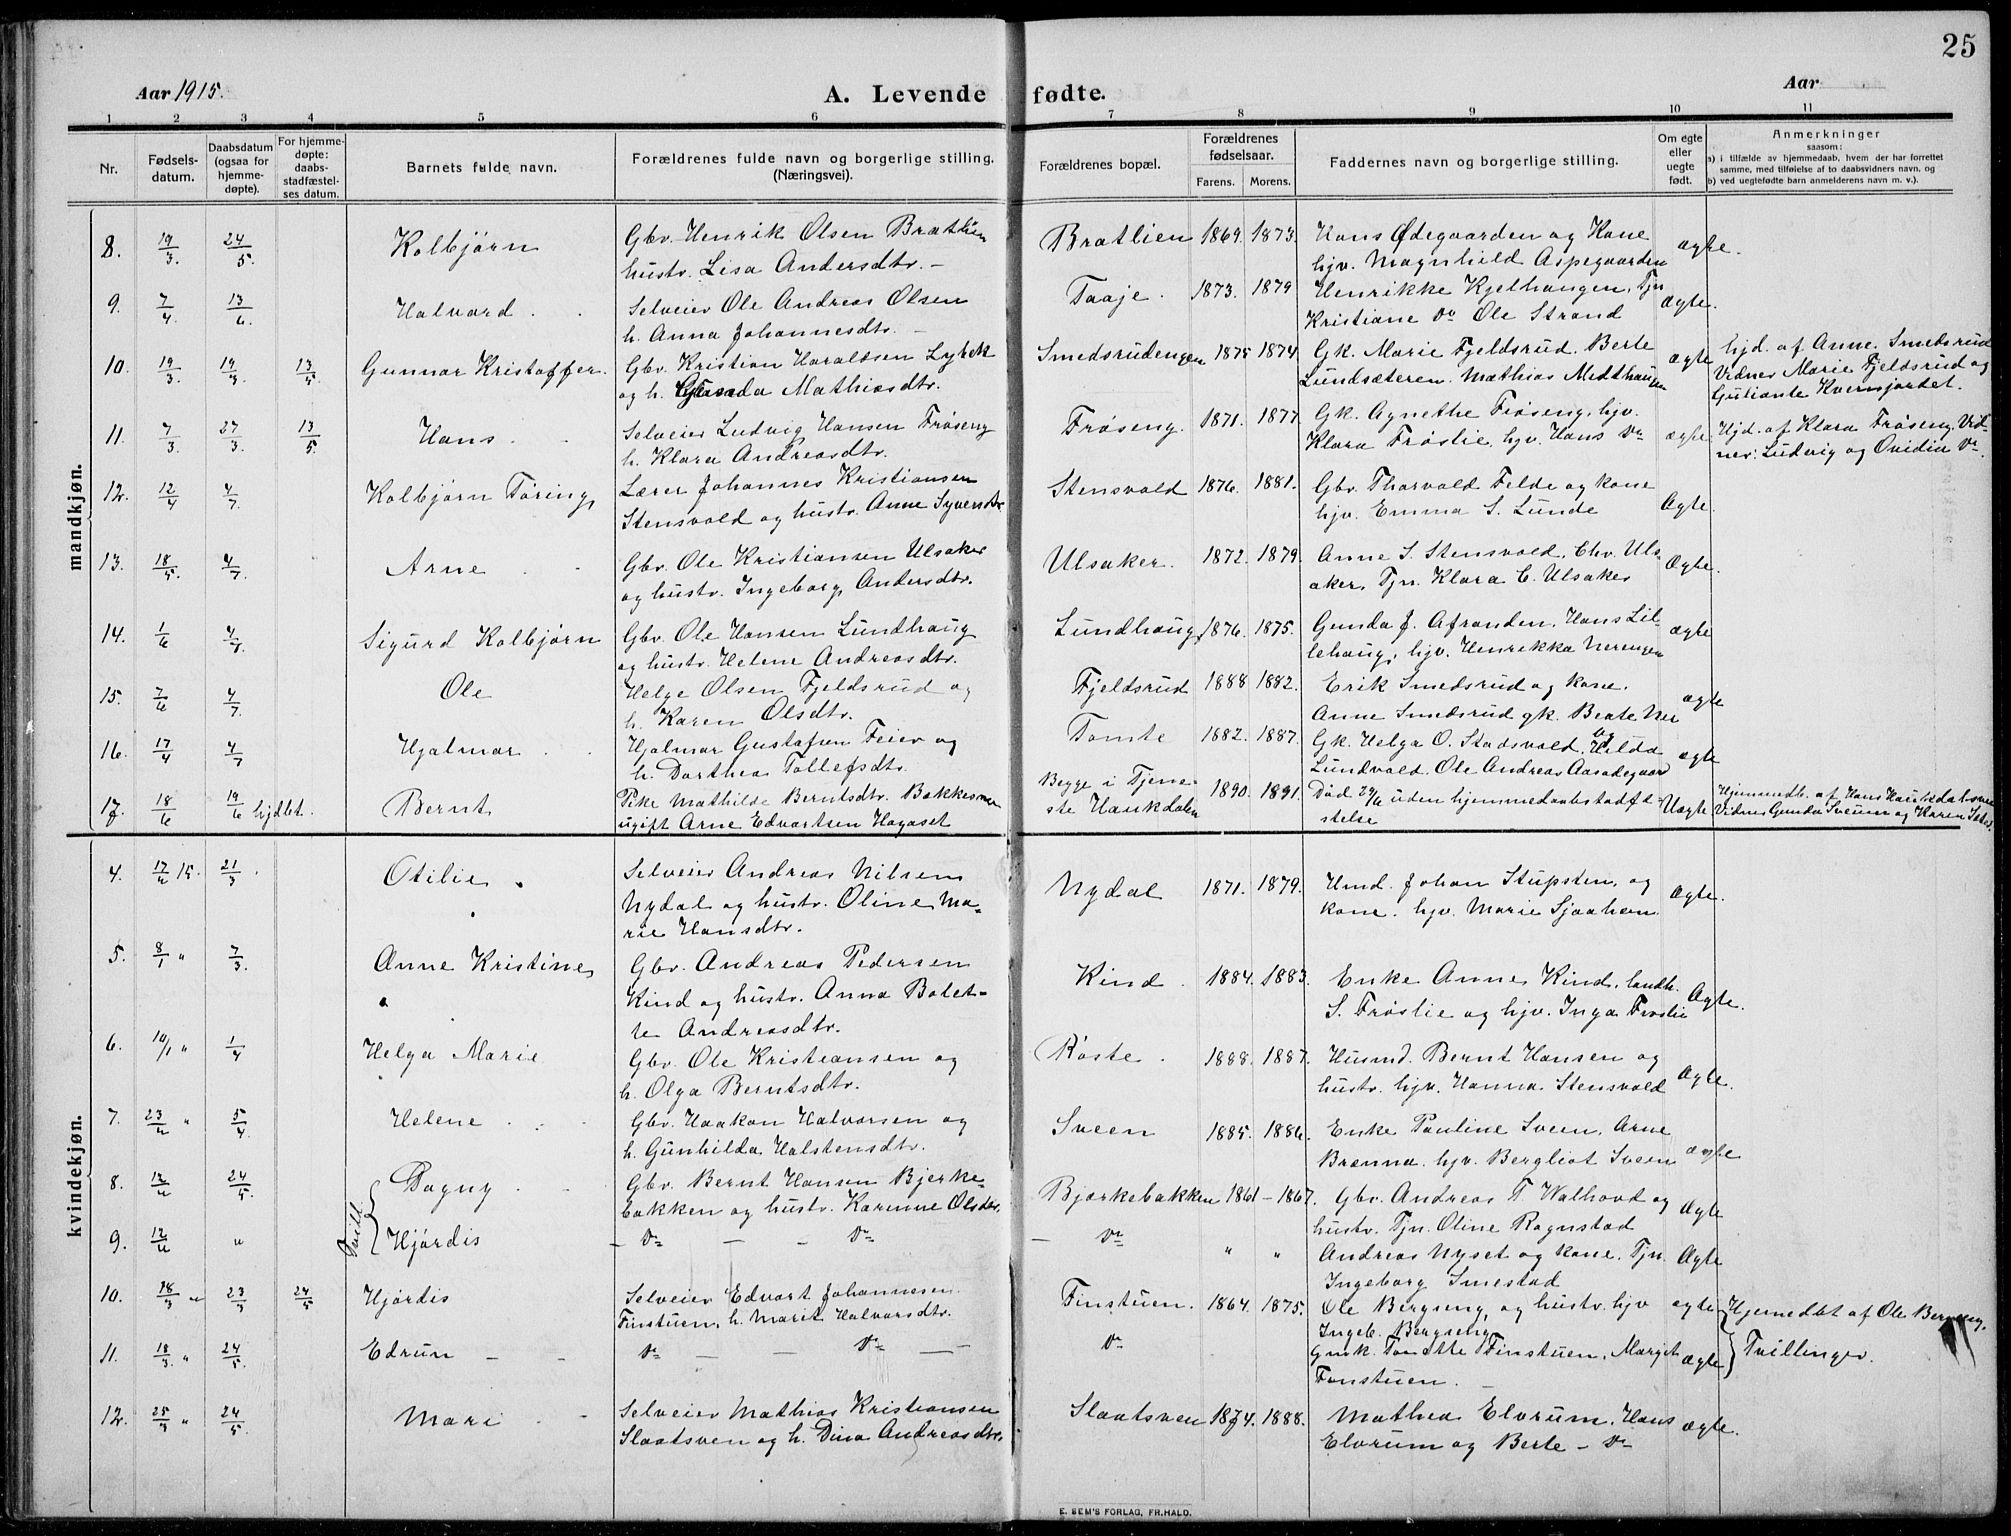 25
Aar 1915.
A. Levende fødte.
Aar
1 2 3 4 5 6 7 8 9 10 11
Nr.
Fødsels-
datum.
Daabsdatum
(ogsaa for
hjemme-
døpte).
For hjemme-
døpte:
daabs-
stadfæstel-
ses datum.
Barnets fulde navn.
Forældrenes fulde navn og borgerlige stilling.
(Næringsvei).
Forældrenes bopæl.
Forældrenes
fødselsaar.
Farens. Morens.
Faddernes navn og borgerlige stilling.
Om egte
eller
uegte
født.
Anmerkninger
saasom:
a) i tilfælde av hjemmedaab, hvem der har forrettet
samme, med tilføielse af to daabsvidners navn, og
b) ved uegtefødte barn anmelderens navn m. v.).
mandkjøn.
8. 19/3. 24/5. Kolbjørn Gbr. Henrik Olsen Bratlien Bratlien 1869. 1873. Hans Ødegaarden og Kone ægte.
hustr. Lisa Andersdtr. – hjv. Magnhild Aspegaarden
9. 7/4. 13/6. Halvard. Selveier Ole Andreas Olsen Taaje. 1873. 1879 Henrikke Kjelhaugen, Tjn ægte.
h. Anna Johannesdtr. – Kristiane Do Ole Strand
10. 19/3. 19/3. 13/5 Gunnar Kristoffer. Gbr. Kristian Haraldsen Lybek Smedsrudengen 1875 1874 Gk. Marie Fjeldsrud. Berte ægte hjd. af Anne Smedsrud
og h. Gunda Mathiasdtr. Lundsæteren. Mathias Midthaugen Vidner Marie Fjeldsrud og
Guliante Kvernjordet.
11. 7/3. 27/3. 13/5 Hans. Selveier Ludvig Hansen Frøseng Frøseng. 1871. 1877 Gk. Agnethe Frøseng, hjv. ægte. Hjd. af Klara Frøseng. Vid-
h. Klara Andreasdtr. Klara Frøslie, hjv. Hans Do ner: Ludvig og Ovidia Do
12. 12/4 4/7. Kolbjørn Tøring Lærer Johannes Kristiansen Stensvold 1876. 1881. Gbr. Thorvald Felde og kone Ægte.
Stensvold og hustr. Anne Syversdtr hjv. Emma S. Lunde
13. 18/5. 4/7. Arne Gbr. Ole Kristiansen Ulsaker Ulsaker. 1872. 1879 Anne S. Stensvold, Chr. Uls- Ægte.
og hustr. Ingeborg Andersdtr. aker, Tjn. Klara C. Ulsaker
14. 1/6 4/7. Sigurd Kolbjørn Gbr. Ole Hansen Lundhaug Lundhaug 1876. 1875. Gunda J. Afranden, Hans Lil- ægte
og hustr. Helene Andreasdtr. lehaug, hjv. Henrikka Nerengen
15. 7/6 4/7 Ole Helge Olsen Fjeldsrud og Fjeldsrud 1888 1882. Erik Smedsrud og kone. ægte
h. Karen Olsdtr. Anne Smedsrud gk. Beate Ner
16. 17/4 4/7 Hjalmar Hjalmar Gustafsen Feier og Tomte 1882. 1887. Gk. Helga O. Stadsvold, og Hilda ægte
h. Dorthea Tollefsdtr. Lundvold. Ole Andreas Aasadegaard
17. 18/6 19/6 hjdbt. Bernt Pike Mathilde Berntsdtr. Bakkesveen Begge i Tjene- 1890. 1891. Død 29/6 uden hjemmedaabstadfæ- Uægte Hjemmedb. af Hans Haukdalsveen
ugift Arne Edvartsen Hagaset ste Haukdalen stelse Vidner Gunda Sveum og Karen
kvindekjøn.
4. 17/2 15. 21/3. Otilie. Selveier Andreas Nilsen Nydal 1871. 1879. Hmd. Johan Stupsten, og Ægte.
Nydal og hustr. Oline Ma- kone. hjv. Marie Sjaahem
rie Hansdtr.
5. 8/1 " 7/3. Anne Kristine Gbr. Andreas Pedersen Kind. 1884. 1883. Enke Anne Kind, landh. Ægte.
Kind og hustr. Anna Bolet- S. Frøslie og hjv. Inga Frøslie
te Andreasdtr.
6. 10/1 " 1/4 Helga Marie Gbr. Ole Kristiansen og Røste. 1888. 1887. Husmd. Bernt Hansen og Ægte.
h. Olga Berntsdtr. hustr. hjv. Hanna Stensvold
7. 23/2 " 5/4. Helene Gbr. Haakon Halvorsen og Sveen 1885. 1886. Enke Pauline Sveen, Arne ægte
h. Gunhilda Halstensdtr. Brenna. hjv. Bergliot Sveen
Tvill.
8. 12/2 24/5. Dagny Gbr. Bernt Hansen Bjerke- Bjørkebakken 1861 – 1867. Gbr. Andreas T. Walhovd og Ægte
bakken og hustr. Karenne Olsdtr. hustr. Tjn. Oline Rognstad
9. 12/2 " Hjørdis – Do – – Do – Do " " Andreas Nyset og kone. Tjn. Ægte
Ingeborg Smestad
10. 18/3 " 23/3 24/5 Hjørdis Selveier Edvart Johannesen. Finstuen. 1864. 1875. Ole Bergseng, og hustr. hjv ægte Hjemedbt af Ole Bergseng.
Finstuen, h. Marit Halvorsdtr. Ingeb. Bergseng
11. 18/3. " 24/5. Edrun – – Do – – Do – – Do Gmk. Finstuen. Marget ægte Tvillinger.
Finstuen. –
12. 25/3 " 24/5 Mari Selveier Mathias Kristiansen Slaatsven 1874. 1888. Mathea Elvrum, Hans ægte.
Slaatsven og h. Dina Andreasdtr. Elvrum og Berte – Do
E. SEM'S FORLAG, FR.HALD.